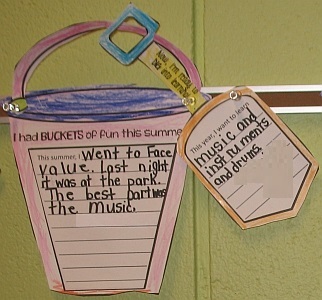 Now, I'm ready to
dig into learning!
I had BUCKETS of fun this summer
This summer, I went to Face
value. Last night
it was at the park.
The best part was
the music.
This year, I want to learn
music and
instruments
and drums.